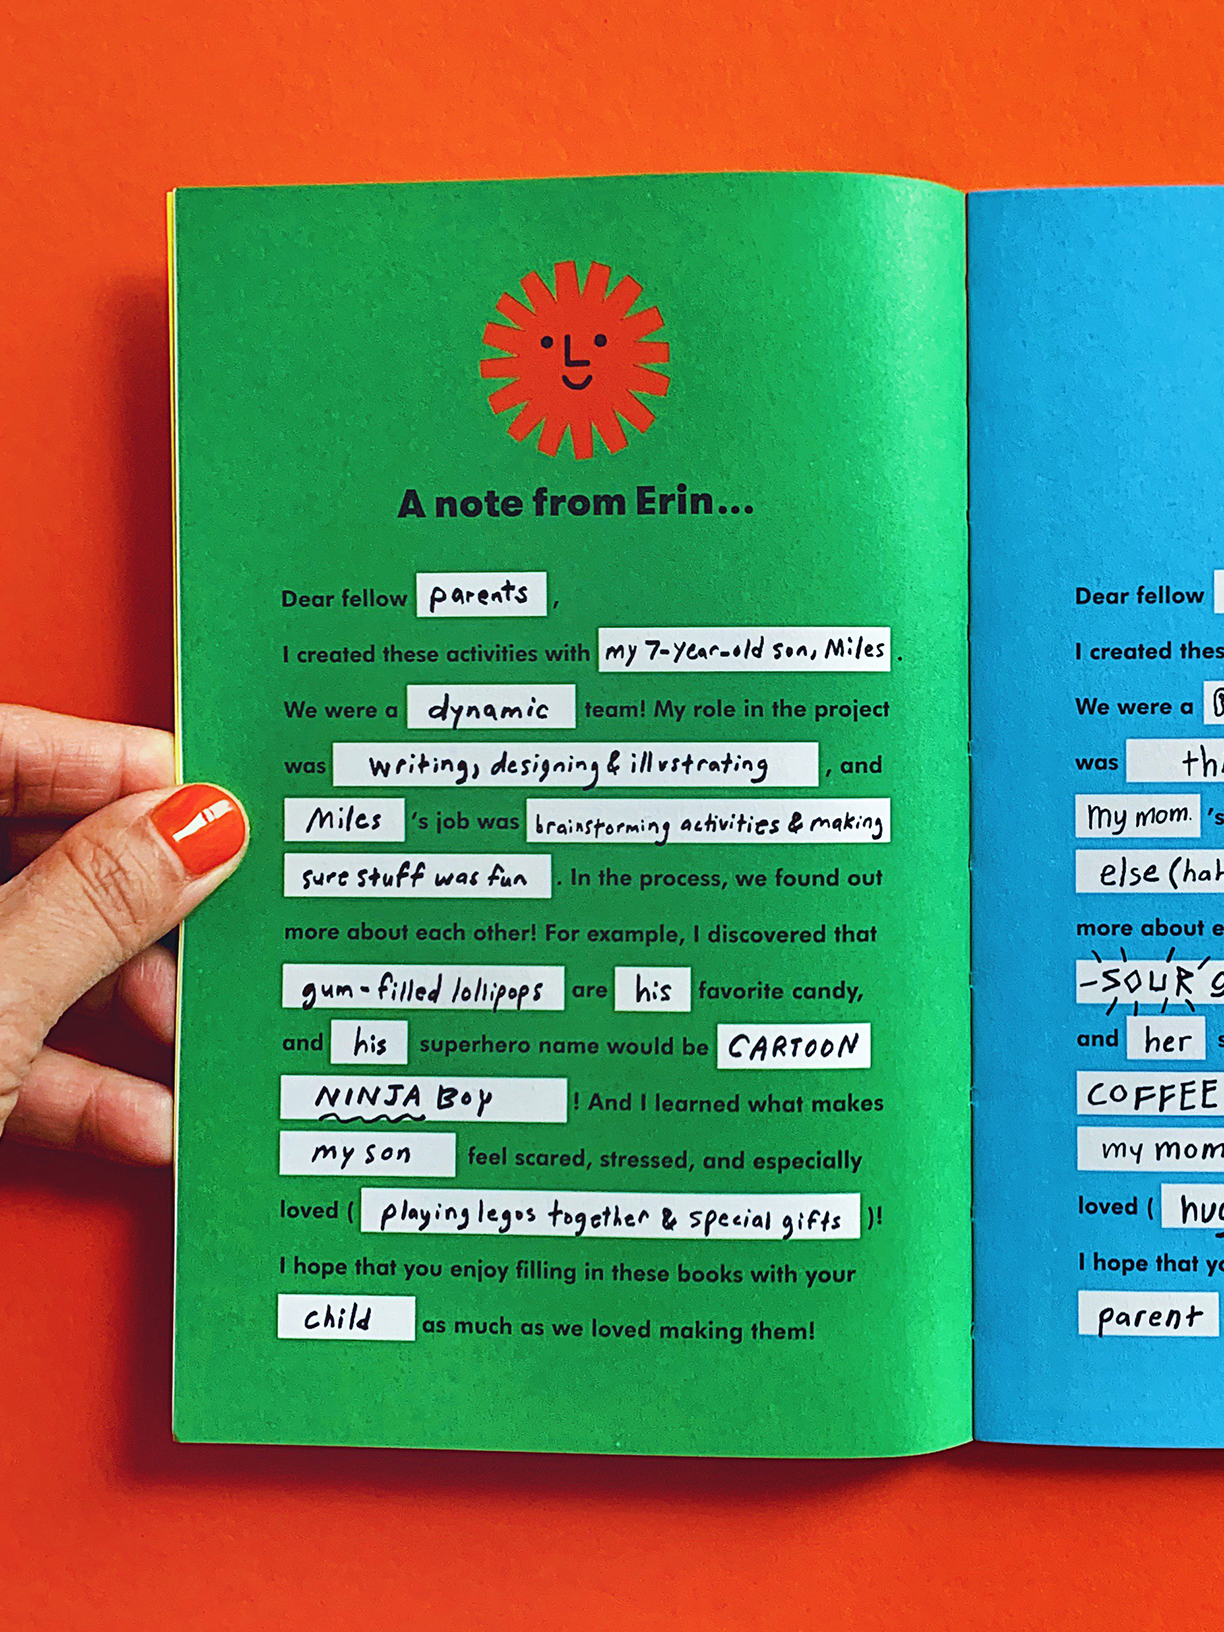 A note from Erin...
Dear fellow parents,
I created these activities with my 7-year-old son, Miles.
We were a dynamic team! My role in the project
was writing, designing & illustrating, and
Miles's job was brainstorming activities & making
sure stuff was fun. In the process, we found out
more about each other! For example, I discovered that
gum-filled lollipops are his favorite candy,
and his superhero name would be CARTOON
NINJA BOY! And I learned what makes
my son feel scared, stressed, and especially
loved (playing legos together & special gifts)!
I hope that you enjoy filling in these books with your
child as much as we loved making them!
Dear fellow
I created
We were a
was
my mom.'s
else
more about
-SOUR
and her
COFFEE
my mom
loved (
I hope that
parent